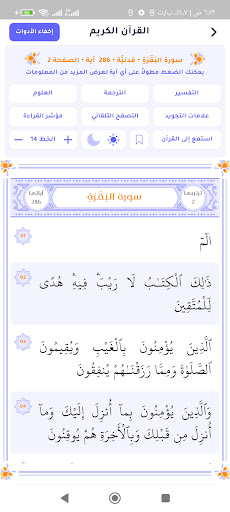 القرآن الكريم
إخفاء الأدوات
سورة البَقَرَةِ • مَدَنيَّة • 286 آية • الصفحة 2
يمكنك الضغط مطولاً على أي آية لعرض المزيد من المعلومات
التفسير الترجمة العلوم
علامات التجويد التصفح التلقائي مؤشر القراءة
استمع إلى القرآن
+ الخط 14 −
ترتيبها 2
سورة البَقَرَةِ
آياتها 286
01
الٓمٓ
02
ذَٰلِكَ ٱلْكِتَـٰبُ لَا رَيْبَ ۛ فِيهِ ۛ هُدًى
لِّلْمُتَّقِينَ
03
ٱلَّذِينَ يُؤْمِنُونَ بِٱلْغَيْبِ وَيُقِيمُونَ
ٱلصَّلَوٰةَ وَمِمَّا رَزَقْنَـٰهُمْ يُنفِقُونَ
04
وَٱلَّذِينَ يُؤْمِنُونَ بِمَآ أُنزِلَ إِلَيْكَ وَمَآ
أُنزِلَ مِن قَبْلِكَ وَبِٱلْـَٔاخِرَةِ هُمْ يُوقِنُونَ